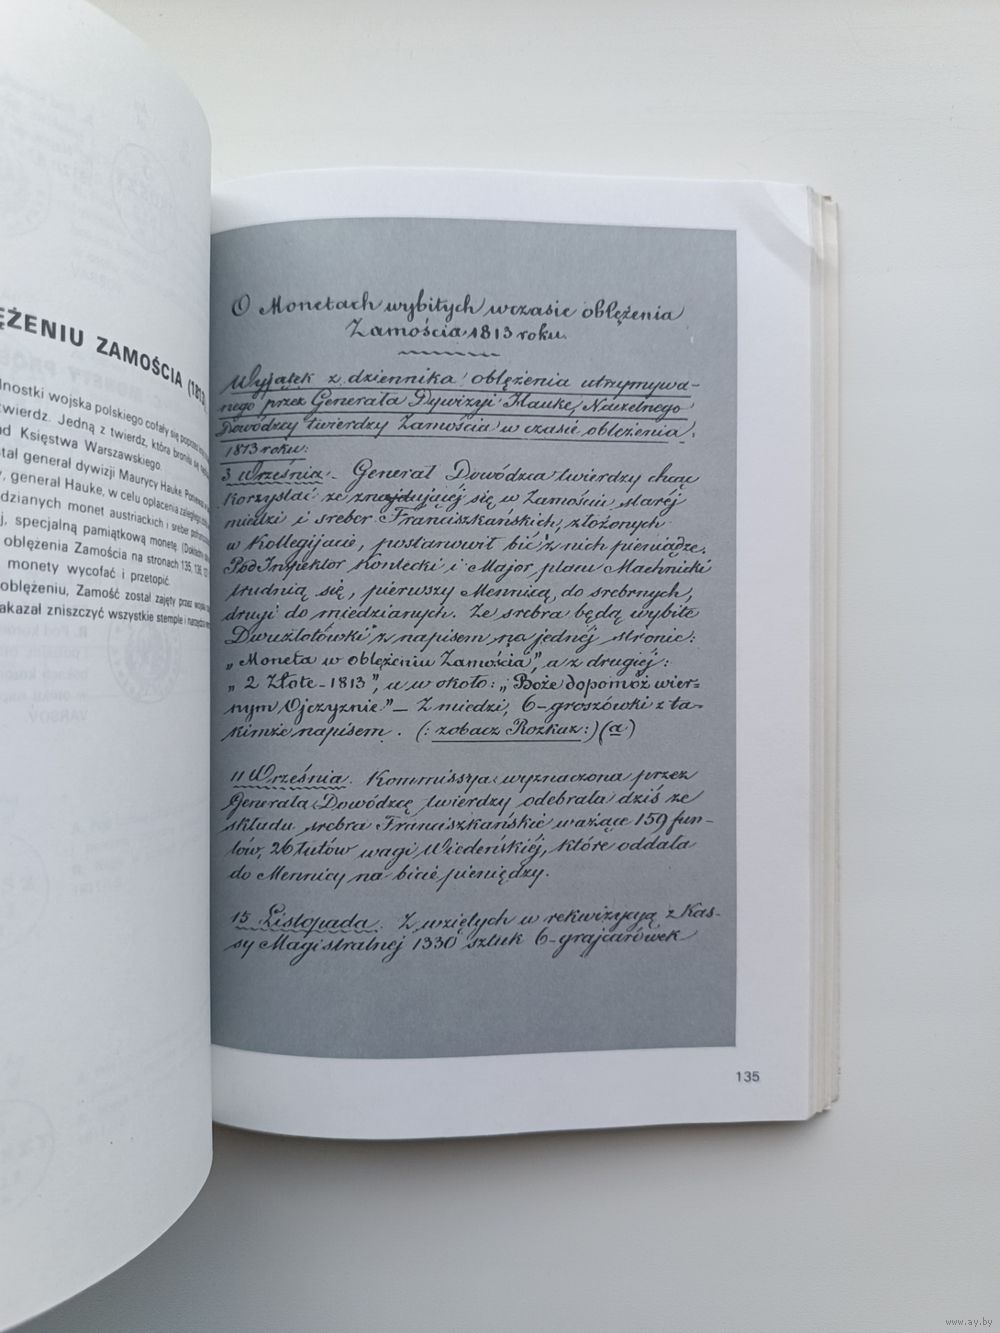 ĘŻENIU ZAMOŚCIA (1813
dnostki wojska polskiego cofały się poprzez
twierdz. Jedną z twierdz, która broniła się
ad Księstwa Warszawskiego.
tał generał dywizji Maurycy Hauke.
y, generał Hauke, w celu opłacenia zaległego
dzianych monet austriackich i sreber
j, specjalną pamiątkową monetę. (Dokładny
oblężenia Zamościa na stronach 135, 136,
monety wycofać i przetopić.
oblężeniu, Zamość został zajęty przez wojska
akazał zniszczyć wszystkie stemple i narzędzia
O Monetach wybitych wczasie oblężenia
Zamościa 1813 roku.
Wyjątek z dziennika oblężenia utrzymywa-
nego przez Generała Dywizyi Hauke, Naczelnego
Dowódzcy twierdzy Zamościa w czasie oblężenia,
1813 roku:
3 Września. Generał Dowódzca twierdzy chcąc
korzystać ze znajdującej się w Zamościu starej
miedzi i sreber Franciszkańskich, złożonych
w Kollegijacie, postanowił bić z nich pieniądze.
Pod Inspektor Kontecki i Major placu Machnicki
trudnią się, pierwszy Mennicą, do srebrnych,
drugi do miedzianych. Ze srebra będą wybite
Dwuzłotówki z napisem na jednéj stronie:
„Moneta w oblężeniu Zamościa", a z drugiéj:
„2 Złote-1813", a w około: „Boże dopomóż wier=
nym Ojczyznie"— Z miedzi, 6-groszówki z ta-
kimże napisem. (: zobacz Rozkaz:) (a)
11 Września. Kommissya wyznaczona przez
Generała Dowódzcę twierdzy odebrała dziś ze
składu srebra Franciszkańskie ważące 159 fun-
tów, 26 łutów wagi Wiedeńskiéj, które oddała
do Mennicy na bicie pieniędzy.
15 Listopada. Z wziętych w rekwizycyą z Kas-
sy Magistralnej 1330 sztuk 6-grajcarówek
135
www.ay.by